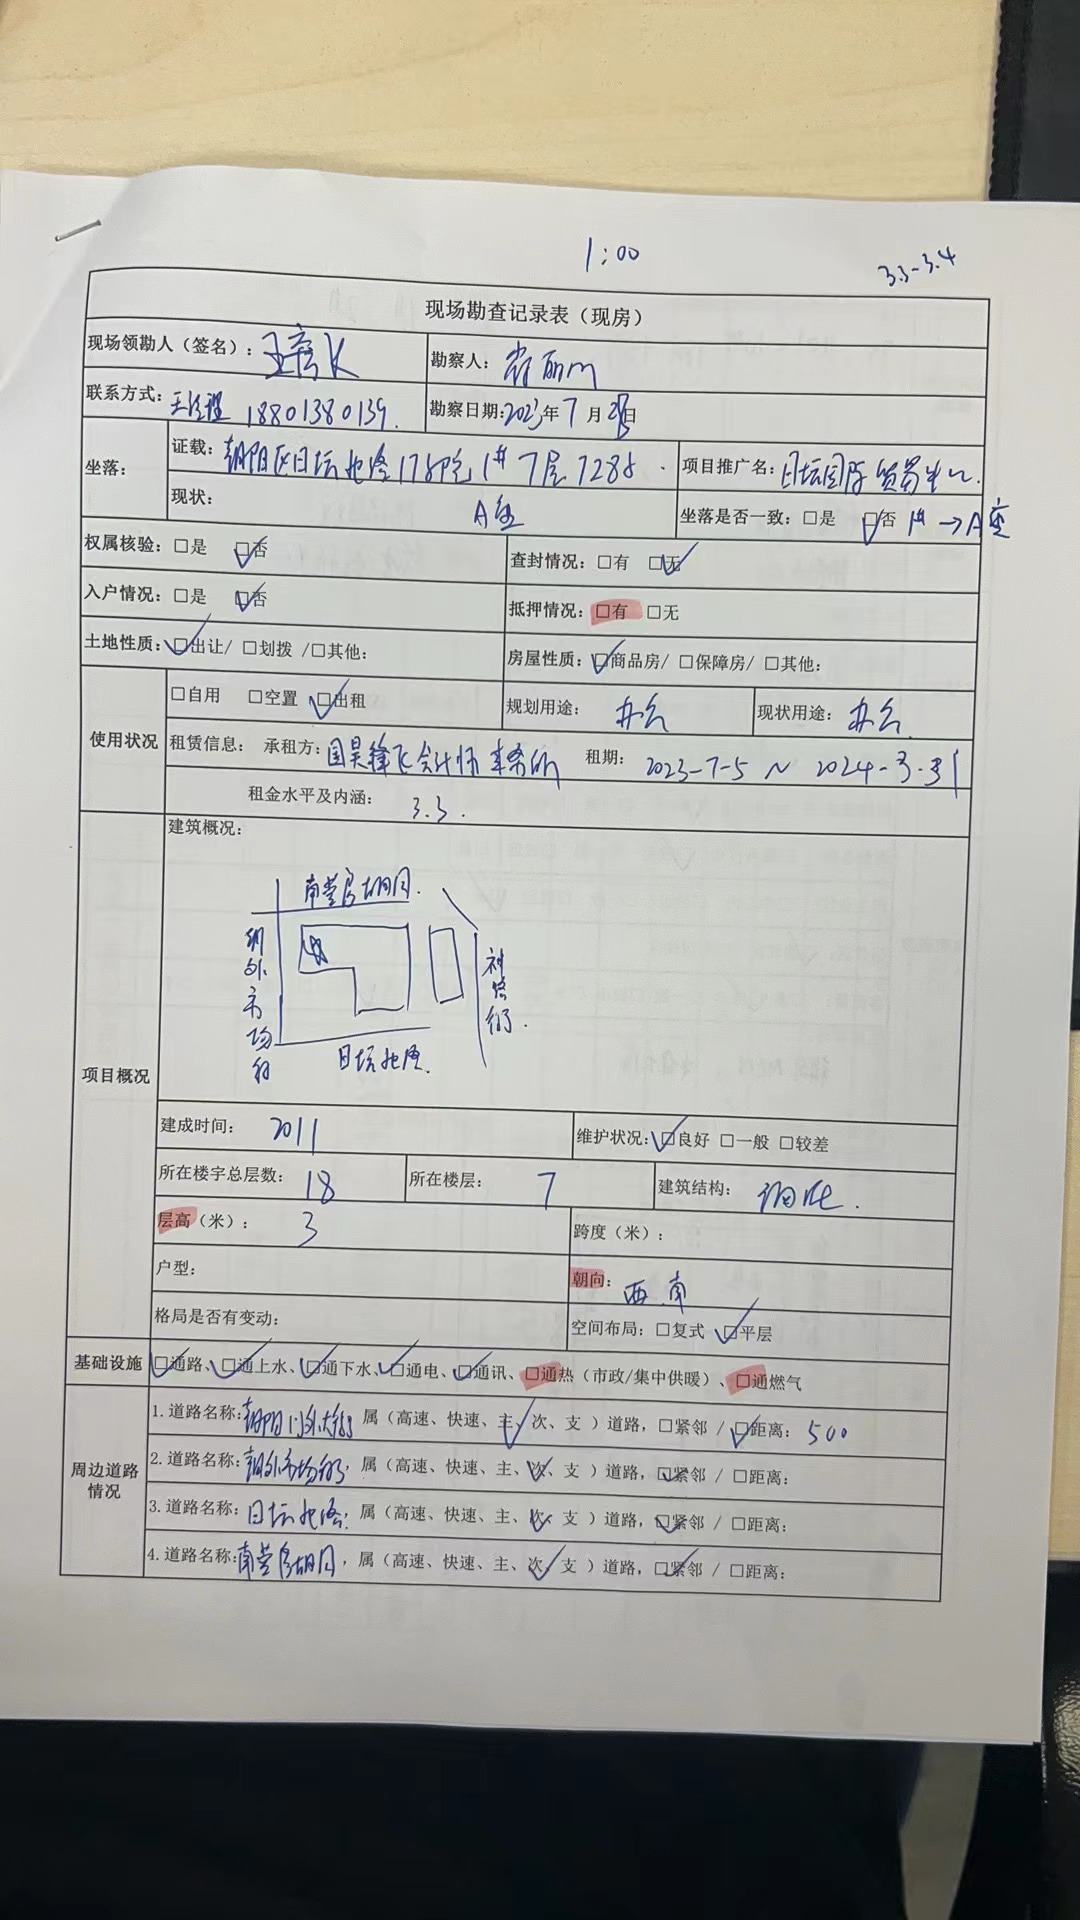 1:00
3.3-3.4
现场勘查记录表（现房）
现场领勘人（签名）：
勘察人：
联系方式：王经理 18801380139.
勘察日期:2023年7月28日
坐落：
证载：朝阳区日坛北路17号院1#7层728号
项目推广名：日坛国际贸易中心.
现状：A座
坐落是否一致：□是 ☑否 1#→A座
权属核验：□是 ☑否
查封情况：□有 ☑无
入户情况：□是 ☑否
抵押情况：□有 □无
土地性质：☑出让/ □划拨 /□其他：
房屋性质：☑商品房/ □保障房/ □其他：
使用状况
□自用 □空置 ☑出租
规划用途：办公
现状用途：办公
租赁信息： 承租方：国昊锋飞会计师事务所 租期：2023-7-5 ~ 2024-3-31
租金水平及内涵：3.3.
项目概况
建筑概况：
南营房胡同.
朝外市场街
神路街.
日坛北路.
建成时间：2011
维护状况：☑良好 □一般 □较差
所在楼宇总层数：18
所在楼层：7
建筑结构：钢混.
层高（米）：3
跨度（米）：
户型：
朝向：西南
格局是否有变动：
空间布局：□复式 ☑平层
基础设施
☑通路、☑通上水、☑通下水、☑通电、☑通讯、□通热（市政/集中供暖）、□通燃气
周边道路情况
1.道路名称：朝阳门外大街 属（高速、快速、主✓、次、支 ）道路，□紧邻 / ☑距离：500
2.道路名称：朝外市场街，属（高速、快速、主、次✓、支 ）道路，☑紧邻 / □距离：
3.道路名称：日坛北路，属（高速、快速、主、次✓、支 ）道路，☑紧邻 / □距离：
4.道路名称：南营房胡同，属（高速、快速、主、次✓、支 ）道路，☑紧邻 / □距离：